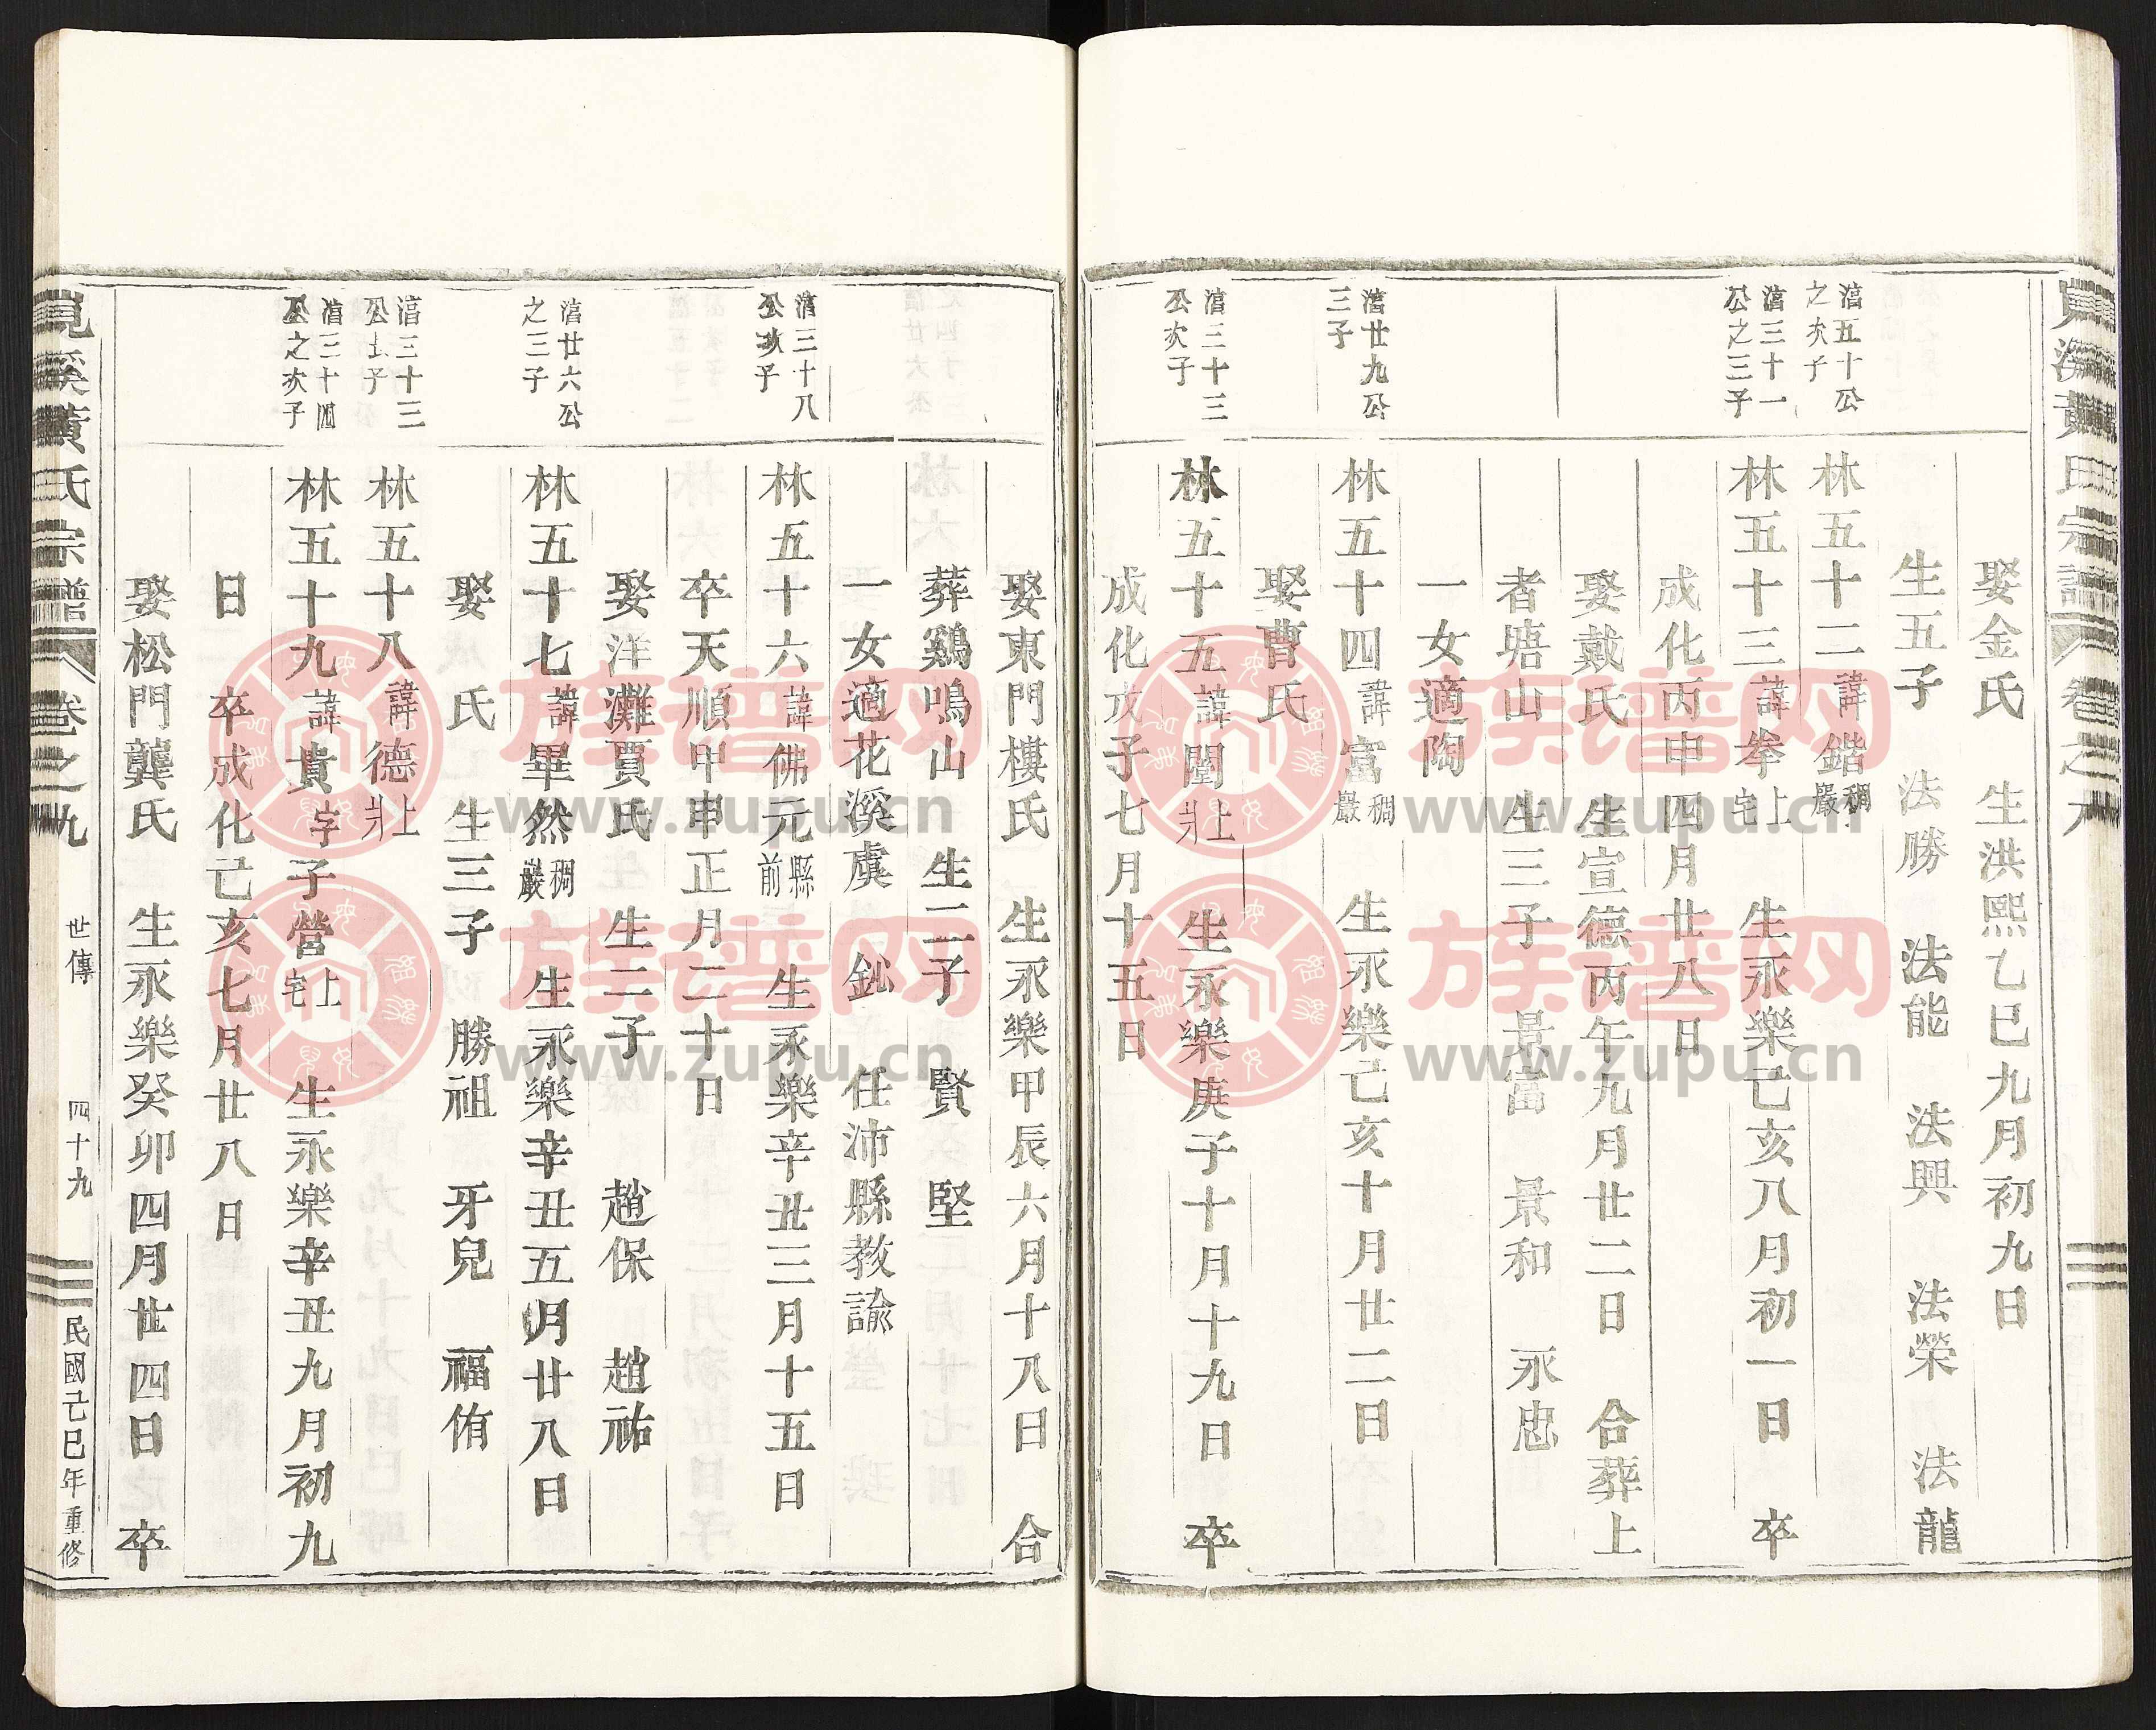 娶金氏 生洪熙乙巳九月初九日
生五子 法勝 法能 法興 法榮 法龍
湻五十公之次子
林五十二諱鍇稠巖
湻三十一公之三子
林五十三諱拳上宅 生永樂己亥八月初一日 卒
成化丙申四月廿八日
娶戴氏 生宣德丙午九月廿二日 合葬上
者塘山 生三子 景富 景和 永忠
一女適陶
湻廿九公三子
林五十四諱富稠巖 生永樂己亥十月廿二日
娶曹氏
湻三十三公次子
林五十五諱闈上爿 生永樂庚子十月十九日 卒
成化戊子七月十五日
娶東門樓氏 生永樂甲辰六月十八日 合
葬鷄鳴山 生二子 賢 堅
一女適花溪虞 鈊 任沛縣教諭
湻三十八公次子
林五十六諱佛元縣前 生永樂辛丑三月十五日
卒天順甲申正月二十日
娶洋灘賈氏 生二子 趙保 趙祐
湻廿六公之三子
林五十七諱畢然稠巖 生永樂辛丑五月廿八日
娶 氏 生三子 勝祖 牙兒 福侑
湻三十三公長子
林五十八諱德上爿
湻三十四公之次子
林五十九諱貴字子營上宅 生永樂辛丑九月初九
日 卒成化己亥七月廿八日
娶松門龔氏 生永樂癸卯四月廿四日 卒
覓溪黃氏宗譜 卷之九 世傳 四十九 民國己巳年重修